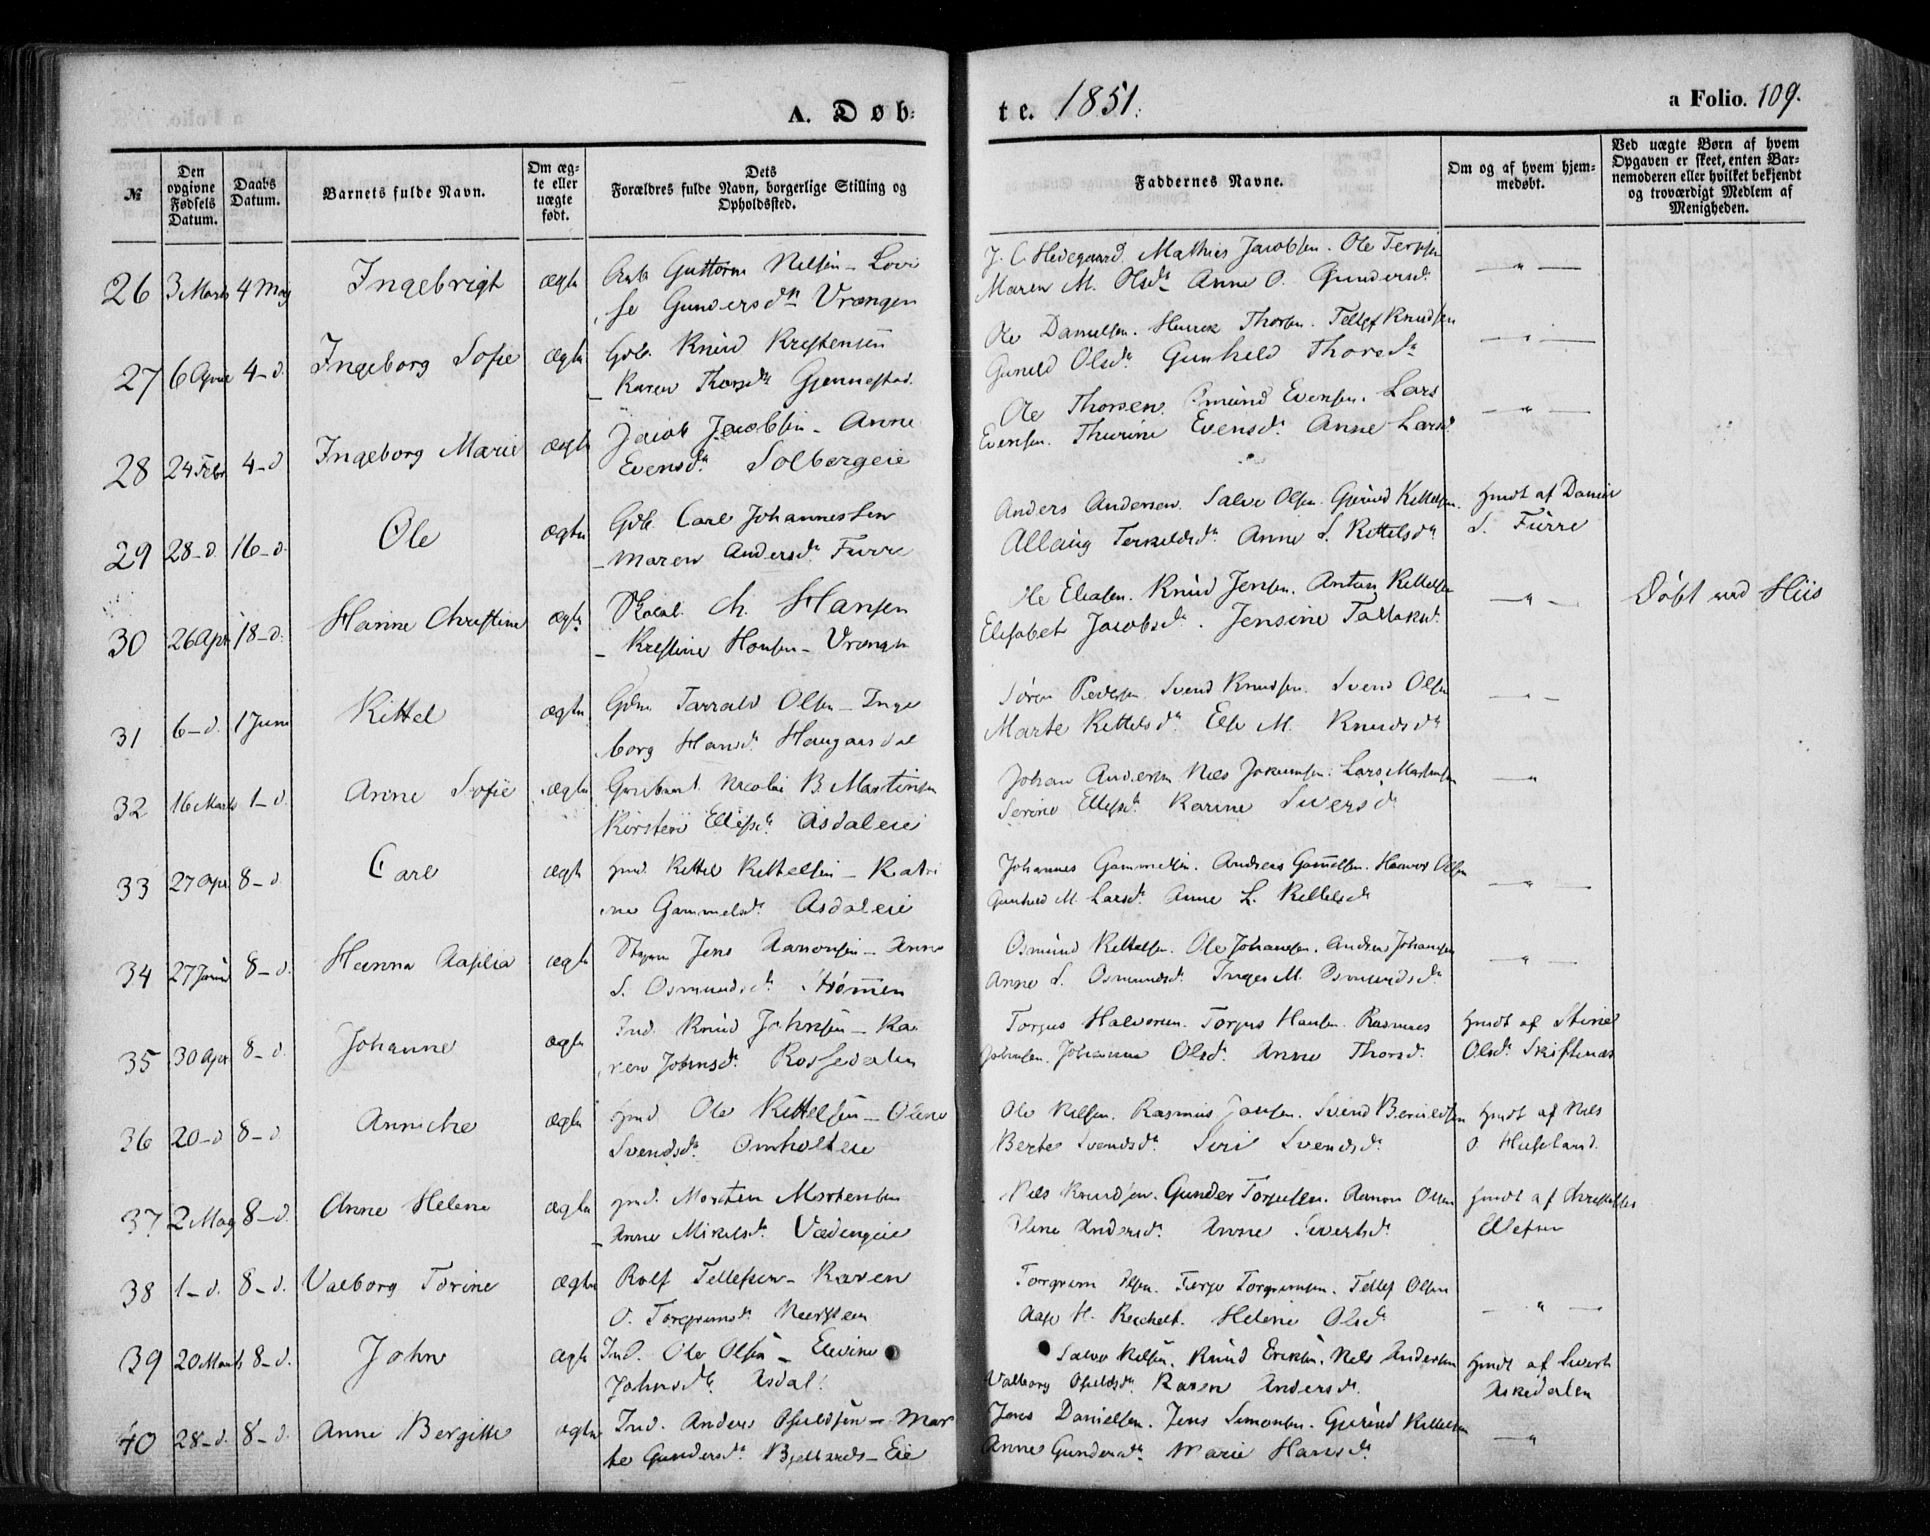 A. Døb=
te. 1851.
a Folio. 109.
№
Den opgivne Fødsels Datum.
Daabs Datum.
Barnets fulde Navn.
Om ægte eller uægte født.
Dets Forældres fulde Navn, borgerlige Stilling og Opholdssted.
Faddernes Navne.
Om og af hvem hjemmedøbt.
Ved uægte Børn af hvem Opgaven er skeet, enten Barnemoderen eller hvilket bekjendt og troværdigt Medlem af Menigheden.
26 3 Marts 4 May Ingebrigt ægte Guttorm Nelsen – Lovi
se Gundersdtr Vrængen
J. C. Hedegaard. Mathies Jacobsen. Ole Terjesen
Maren M. Olsdr Anne O. Gundersdr. — " —
27 6 April 4 – d. Ingeborg Sofie ægte Gdb. Knud Kristensen
– Karen Thorsdtr Gjennestad.
Ole Danielsen. Henrik Thorsen. Tellef Knudsen
Gunild Olsdr Gunhild Thorsdr — " —
28 24 Febr 4 – d Ingeborg Marie ægte Jacob Jacobsen – Anne
Evensdr. Solbergeie
Ole Thorsen. Osmund Evensen. Lars
Evensen. Thurine Evensdr. Anne Larsd. — " —
29 28 – d. 16 – d. Ole ægte Gdb. Carl Johannessen
– Maren Andersdr Furre
Anders Andersen. Salve Olsen. Gjerund Kittelsen.
Allaug Terkeldsdr. Anne S. Kittelsdr
Hmdt af Daniel
S. Furre
30 26 Apr 18 – d. Hanne Christine ægte Ch. Hansen
– Kristine Hansen – Vrængen
Ole Eliasen. Knud Jensen. Anton Kittelsen
Elisabet Jacobsdr. Jensine Tallaksd. — " —
Døbt ved Hiis
31 6 – d. 1 Juni Kittel ægte Gdm Tarrald Olsen – Inge
borg Hansdr Haugaasdal
Søren Pedersen. Svend Knudsen. Svend Olsen
Marte Kittelsdr Else M. Knudsdr — " —
32 16 Marts 1 – d. Anne Sofie ægte Nicolai B. Martinsen
Kirsten Ellefsdr. Asdaleie
Johan Andersen Nils Jokumsen. Lars Martinsen
Serine Ellefsdr. Karine Siversdr — " —
33 27 Apr 8 – d. Carl ægte Hmd. Kittel Kittelsen – Katri
ne Gammelsdr. Asdaleie
Johannes Gammelsen. Andreas Gammelsen. Haavor Olsen
Gunhild M. Larsdr. Anne L. Kittelsdr — " —
34 27 Janu 8 – d. Hanna Aasilia ægte Styrm Jens Aanonsen – Anne
S. Osmundsdr. Strømmen
Osmund Kittelsen. Ole Johansen. Andreas Johansen
Anne S. Osmundsdr. Inger M. Osmundsdr. — " —
35 30 Apr 8 – d. Johanne ægte Ind. Knud Johnsen – Ka
ren Johnsdr. Rossedalen
Torjus Halvorsen. Torjus Hansen. Rasmus
Johnsen. Johanne Olsdr. Anne Thorsdr.
Hmdt af Stine
Olsdr. Skiftenes
36 20 – d 8 – d Anniche ægte Hmd. Ole Kittelsen – Olene
Svendsdr. Omholteie
Ole Nilsen. Rasmus Jensen. Svend Beruldsen
Berte Svendsdr Siri Svendsdr.
Hmdt af Nils
O Huseland.
37 2 May 8 – d. Anne Helene ægte Hmd. Morten Mortensen
– Anne Mikelsdr.
Nils Knudsen. Gunder Torjusen. Aanon Olsen
Oline Andersdr Anne Sivertsdr.
Hmdt af
Ellefsen
38 1 – d. 8 – d. Valborg Torine ægte Rolf Tellefsen – Karen
O. Torgrimsdr. Neersteen
Torgrim Olsen. Terje Torgrimsen. Tellef Olsen
Aase H. Reichelt. Helene Olsdr — " —
39 20 Marts 8 – d. John ægte Ind. Ole Olsen – Elevine
Johnsdtr. Asdal.
Salve Nilsen. Knud Eriksen. Nils Andersen
Valborg Osuldsdr. Karen Andersdr.
Hmdt af Sivert
Askedalen
40 28 – d. 8 – d. Anne Bergitte ægte Ind. Anders Osuldsen – Mar
te Gundersdr. Bjellands – Eie
Jens Danielsen. Jens Simonsen. Gjerund Kittelsen
Anne Gundersdr Marie Hansdr. — " —